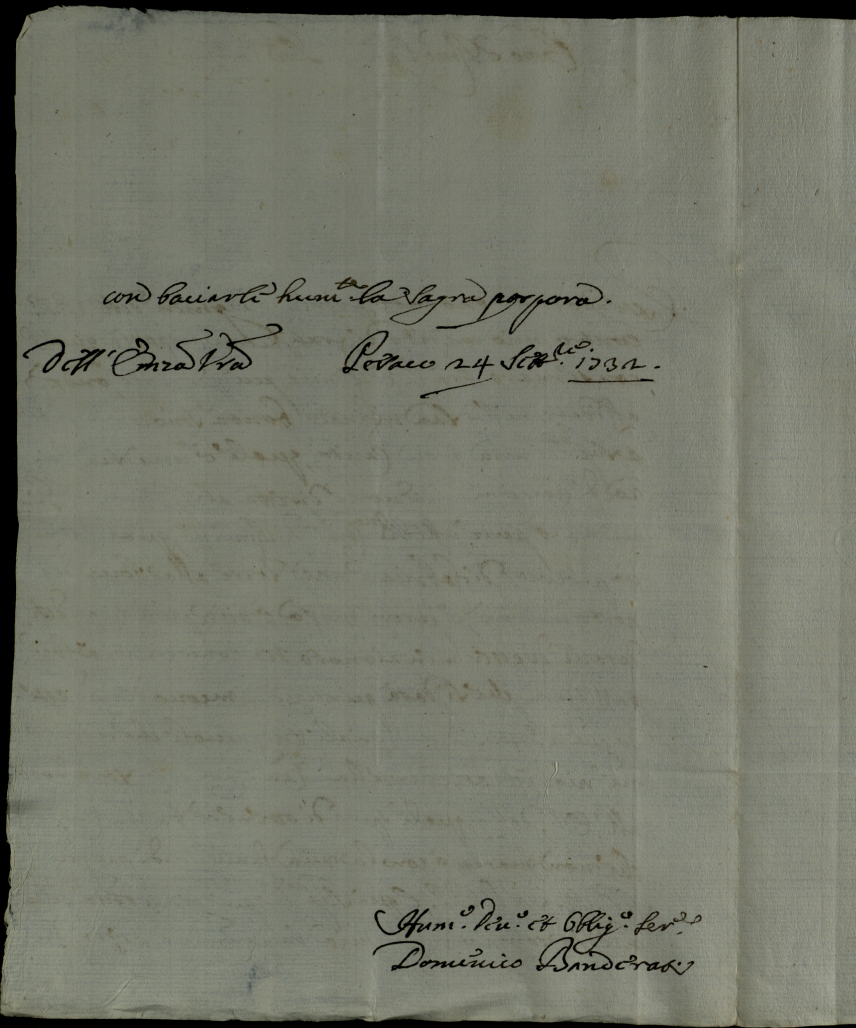 con baciarli hum.te la Sagra porpora.
Dell' Em̄za Vr̄a Pesaro 24 Sett.re 1732.
Hum.o Deu.o et Obblig.o Ser.e
Domenico